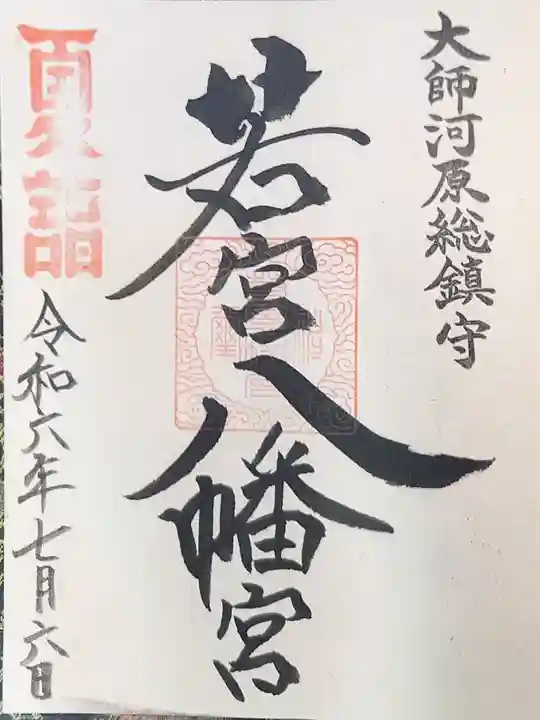 大師河原総鎮守
若宮八幡宮
令和六年七月六日